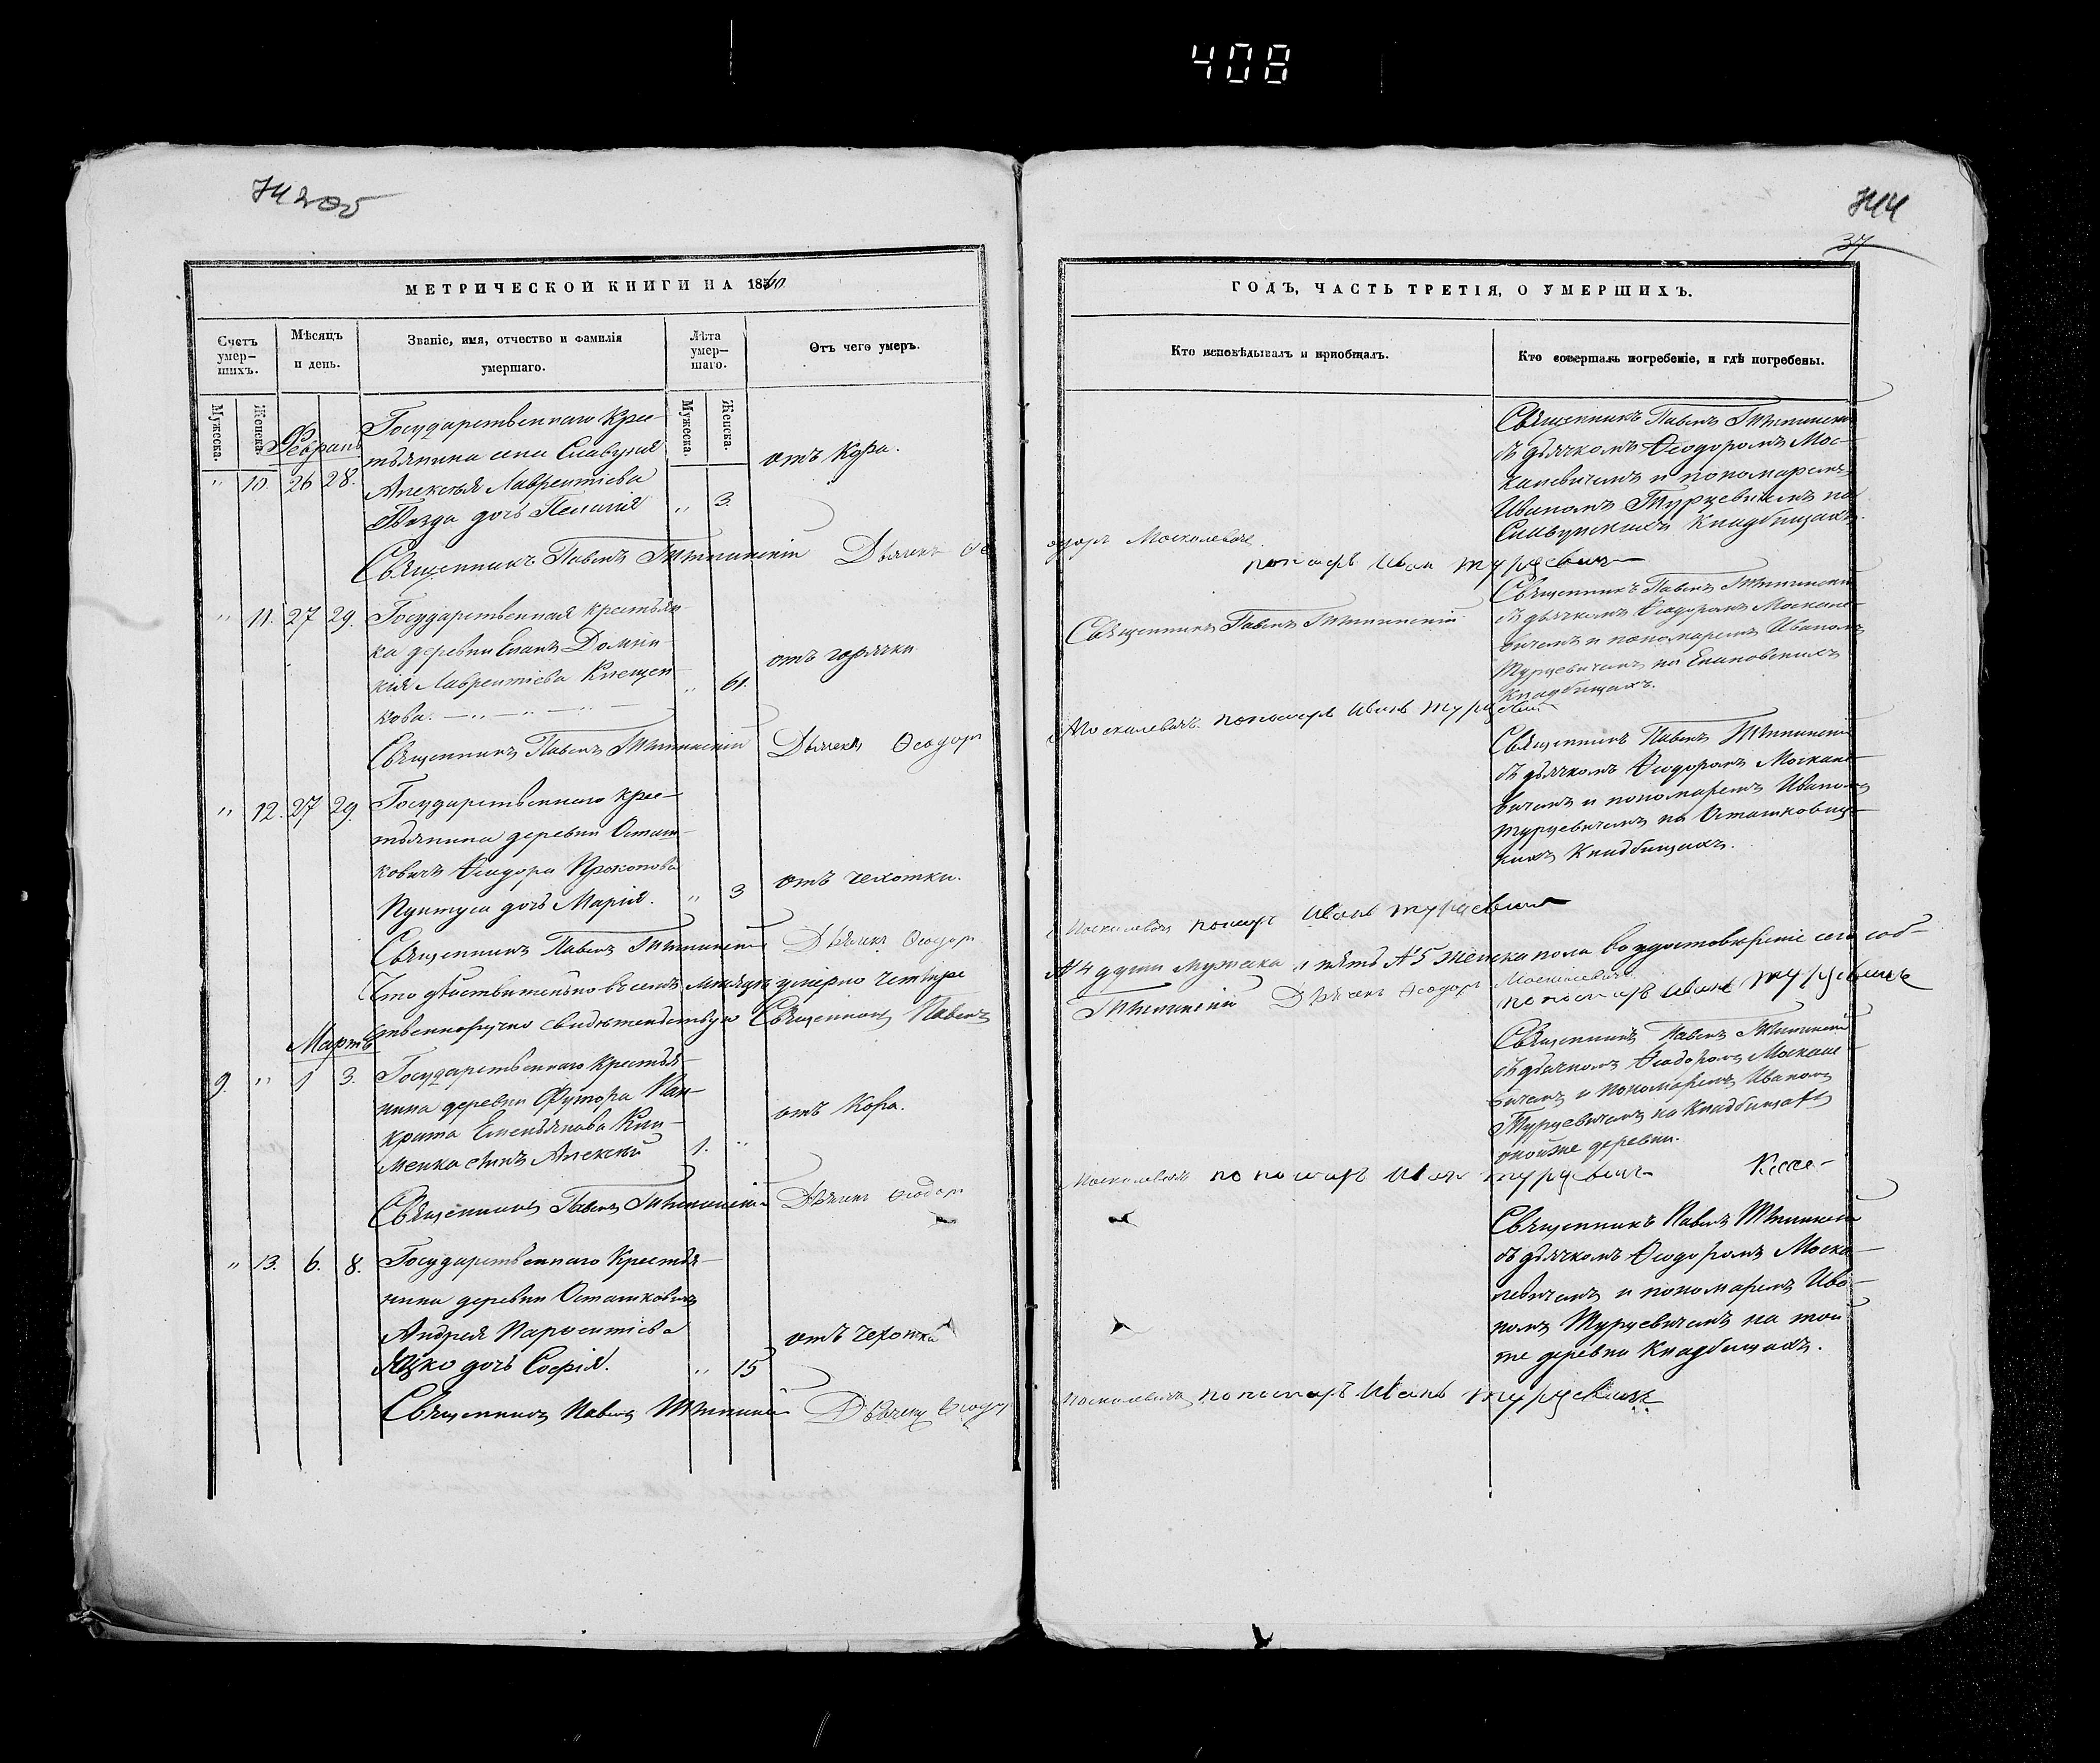 408
205
744
37
МЕТРИЧЕСКОЙ КНИГИ НА 1840
Счетъ умер-шихъ.
Мѣсяцъ и день.
Званіе, имя, отчество и фамилія умершаго.
Лѣта умер-шаго.
Отъ чего умеръ.
Мужеска.
Женска.
Мужеска.
Женска.
Февраль
" 10. 26 28.
Государственнаго Кре-
стьянина села Славуля
Алексѣя Лаврентіева
дочь Пелагія
" 3.
отъ Кора.
Священникъ Павелъ Дьячекъ Ѳе
" 11. 27 29.
Государственная крестьян-
ка деревни Еланъ Домни-
кія Лаврентіева Клещен-
кова.
" 61.
отъ горячки
Священникъ Павелъ Дьячекъ Ѳеодоръ
" 12. 27 29.
Государственнаго кре-
стьянина деревни Осташ-
ковичъ Ѳеодора Прокопова
Пунтуса дочь Марія.
" 3
отъ чехотки.
Священникъ Павелъ Дьячекъ Ѳеодоръ
Что дѣйствительно въ семъ мѣсяцѣ умерло четыре
ственноручно свидѣтельствую Священникъ Павелъ
Мартъ
9. " 1 3.
Государственнаго крестья-
нина деревни Футора Пан-
крата Емельянова Кли-
менка сынъ Алексѣй
1. "
отъ Кора.
Священникъ Павелъ Дьячекъ Ѳеодоръ
" 13. 6. 8.
Государственнаго Крестья-
нина деревни Осташковичъ
Андрея
Яцко дочь Софія.
" 15
отъ чехотка
Священникъ Павелъ Дьячекъ Ѳеодоръ
ГОДЪ, ЧАСТЬ ТРЕТІЯ, О УМЕРШИХЪ.
Кто исповѣдывалъ и пріобщалъ.
Кто совершалъ погребеніе, и гдѣ погребены.
Священникъ Павелъ
съ дьячкомъ Ѳеодоромъ Мос-
калевичемъ и пономаремъ
Иваномъ Турцевичемъ на
Кладбищахъ.
одоръ Москалевичъ.
понамарь Иванъ Турцевичъ
Священникъ Павелъ
Священникъ Павелъ
съ дьячкомъ Ѳеодоромъ Москале-
вичемъ и пономаремъ Иваномъ
Турцевичемъ на Елановскихъ
Кладбищахъ.
Москалевичъ пономарь Иванъ Турцевичъ
Священникъ Павелъ
съ дьячкомъ Ѳеодоромъ Москале-
вичемъ и пономаремъ Иваномъ
Турцевичемъ на Осташковиц-
кихъ Кладбищахъ.
Москалевичъ понамарь Иванъ Турцевичъ
№ 4 души Мужеска и пять № 5 женска пола во удостовѣреніе сего соб-
Дьячекъ Ѳеодоръ Москалевичъ
пономарь Иванъ Турцевичъ
Священникъ Павелъ
съ дьячкомъ Ѳеодоромъ Москале-
вичемъ и пономаремъ Иваномъ
Турцевичемъ на Кладбищахъ
оной же деревни.
Москалевичъ пономарь Иванъ Турцевичъ
Священникъ Павелъ
съ дьячкомъ Ѳеодоромъ Моска-
левичемъ и пономаремъ Ива-
номъ Турцевичемъ на той
же деревни Кладбищахъ.
Москалевичъ пономарь Иванъ Турцевичъ